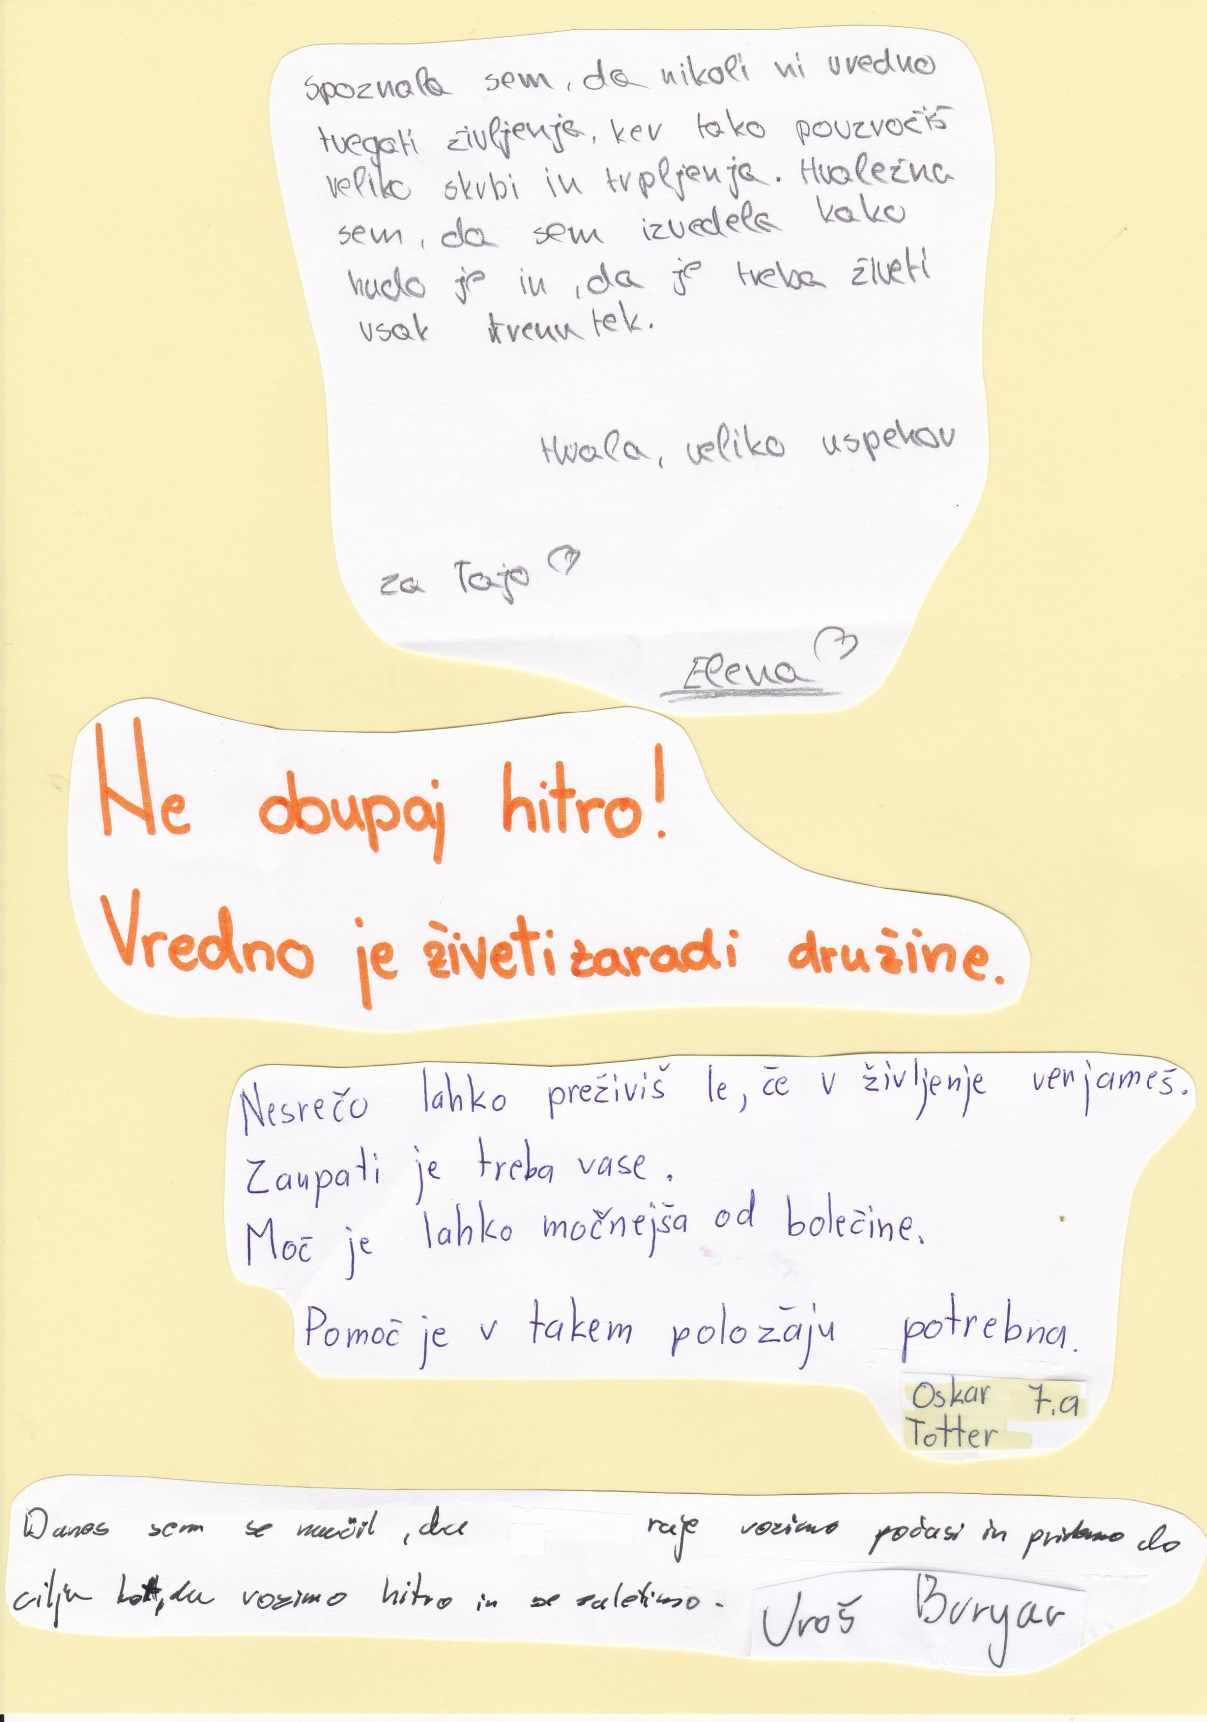 Spoznala sem, da nikoli ni vredno
tvegati življenja, ker tako povzročiš
veliko skrbi in trpljenja. Hvaležna
sem, da sem izvedela kako
hudo je in ,da je treba živeti
vsak trenutek.
Hvala, veliko uspehov
za Tajo
Elena
Ne obupaj hitro!
Vredno je živeti zaradi družine.
Nesrečo lahko preživiš le, če v življenje verjameš.
Zaupati je treba vase.
Moč je lahko močnejša od bolečine.
Pomoč je v takem položaju potrebna.
Oskar 7.a
Totter
Danes sem se naučil, da raje vozimo počasi in pridemo do
cilja kot, da vozimo hitro in se zaletimo.
Uroš